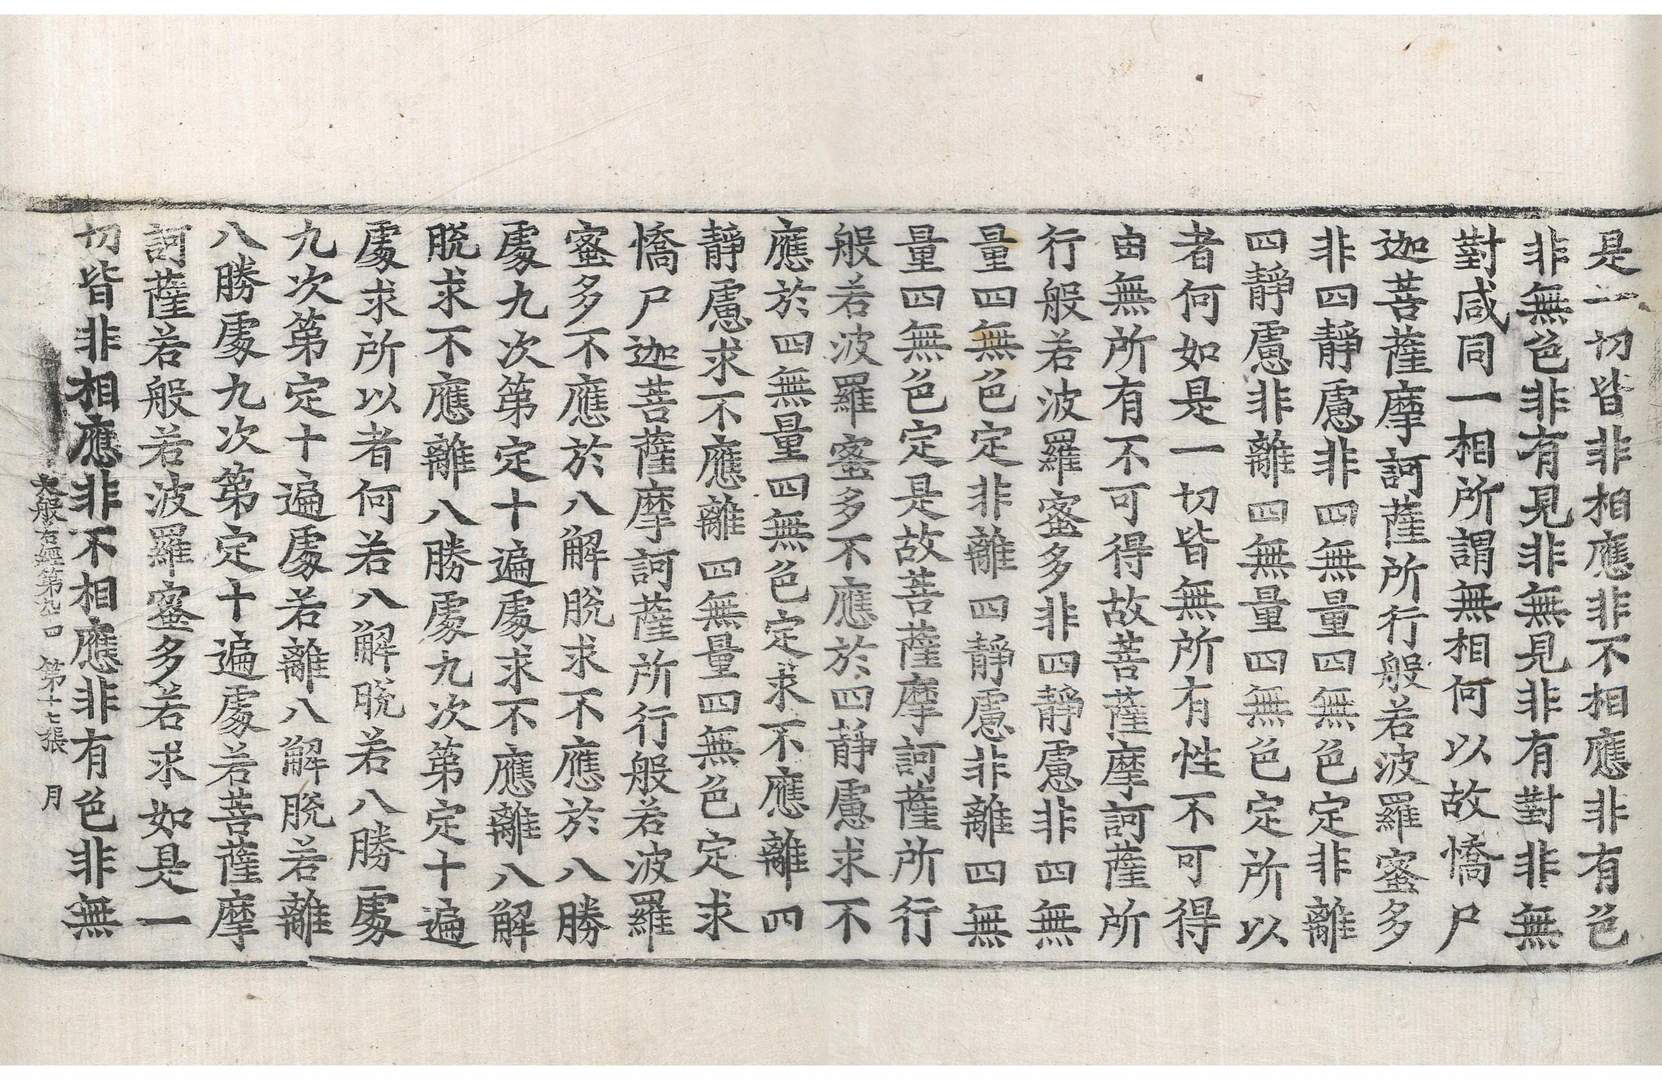 是一切皆非相應非不相應非有色
非無色非有見非無見非有對非無
對咸同一相所謂無相何以故憍尸
迦菩薩摩訶薩所行般若波羅蜜多
非四靜慮非四無量四無色定非離
四靜慮非離四無量四無色定所以
者何如是一切皆無所有性不可得
由無所有不可得故菩薩摩訶薩所
行般若波羅蜜多非四靜慮非四無
量四無色定非離四靜慮非離四無
量四無色定是故菩薩摩訶薩所行
般若波羅蜜多不應於四靜慮求不
應於四無量四無色定求不應離四
靜慮求不應離四無量四無色定求
憍尸迦菩薩摩訶薩所行般若波羅
蜜多不應於八解脫求不應於八勝
處九次第定十遍處求不應離八解
脫求不應離八勝處九次第定十遍
處求所以者何若八解脫若八勝處
九次第定十遍處若離八解脫若離
八勝處九次第定十遍處若菩薩摩
訶薩若般若波羅蜜多若求如是一
切皆非相應非不相應非有色非無
大般若經第九十四 第十七張 月